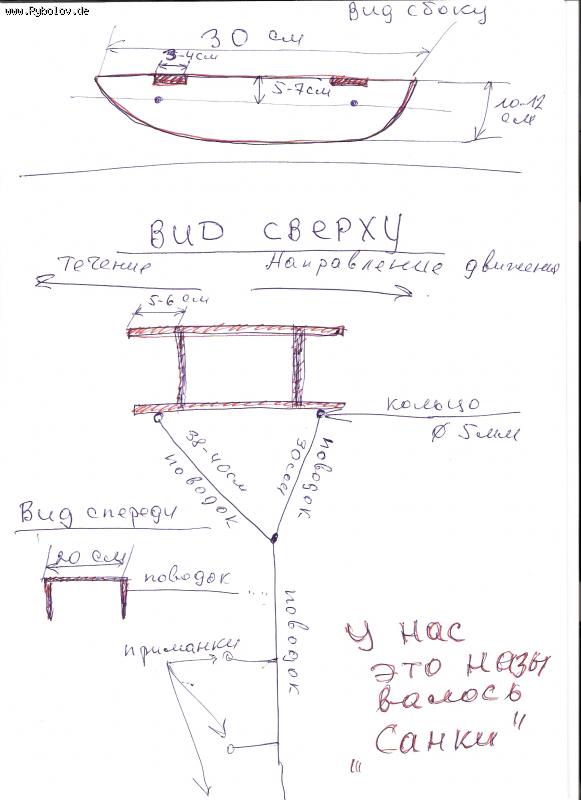 www.Rybolov.de
Вид сбоку
30 см
3-4см
5-7см
10-12
см
ВИД СВЕРХУ
Течение
Направление движения
5-6 см
кольцо
Ø 5мм
38-40см
поводок
30см
поводок
Вид спереди
20 см
поводок
поводок
приманки
У нас
это назы
валось
"Санки"